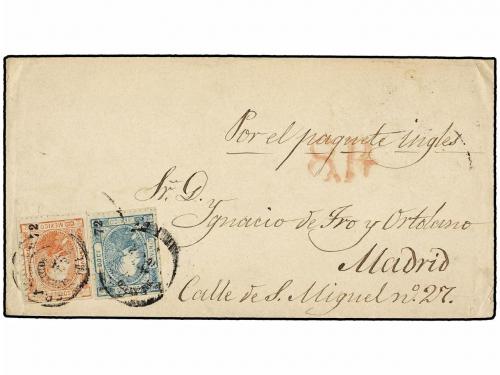 Por el paquete ingles.
Sr. D.
Ygnacio de Yro y Ortolano
Madrid
Calle de S. Miguel nº. 27.
72
72
MEXICO